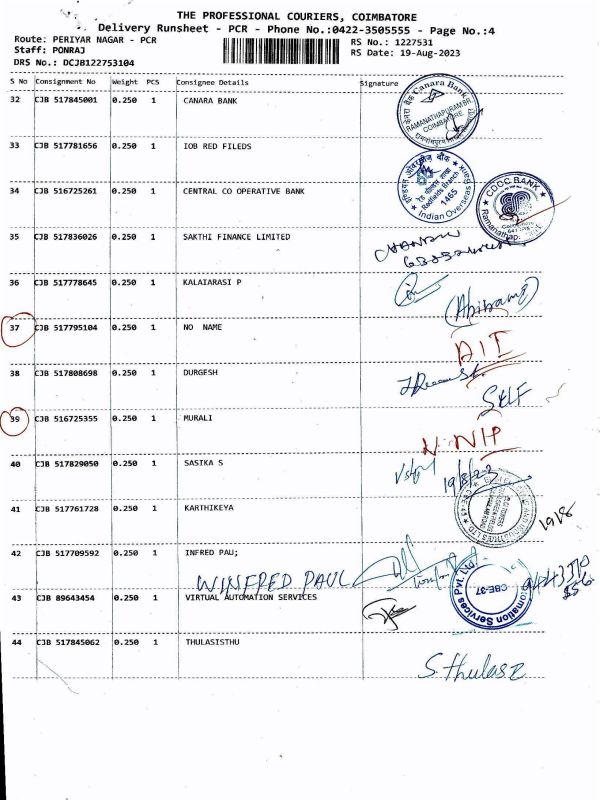 THE PROFESSIONAL COURIERS, COIMBATORE
Delivery Runsheet - PCR - Phone No.:0422-3505555 - Page No.:4
Route: PERIYAR NAGAR - PCR RS No.: 1227531
Staff: PONRAJ RS Date: 19-Aug-2023
DRS No.: DCJB122753104
S No Consignment No Weight PCS Consignee Details Signature
32 CJB 517845001 0.250 1 CANARA BANK
Canara Bank
RAMANATHAPURAM BR.
COIMBATORE
33 CJB 517781656 0.250 1 IOB RED FILEDS
इण्डियन ओवरसीज़ बैंक
Redfields Branch
1465
Indian Overseas Bank
34 CJB 516725261 0.250 1 CENTRAL CO OPERATIVE BANK
CDCC BANK
Ramanathap
35 CJB 517836026 0.250 1 SAKTHI FINANCE LIMITED
36 CJB 517778645 0.250 1 KALAIARASI P
(Abirami)
37 CJB 517795104 0.250 1 NO NAME
38 CJB 517808698 0.250 1 DURGESH
SELF
39 CJB 516725355 0.250 1 MURALI
40 CJB 517829050 0.250 1 SASIKA S
19/8/23
41 CJB 517761728 0.250 1 KARTHIKEYA
19/8
42 CJB 517709592 0.250 1 INFRED PAU;
WINFRED PAUL
43 CJB 89643454 0.250 1 VIRTUAL AUTOMATION SERVICES
Automation Services Pvt. Ltd
CBE-37
44 CJB 517845062 0.250 1 THULASISTHU
S. Thulasi